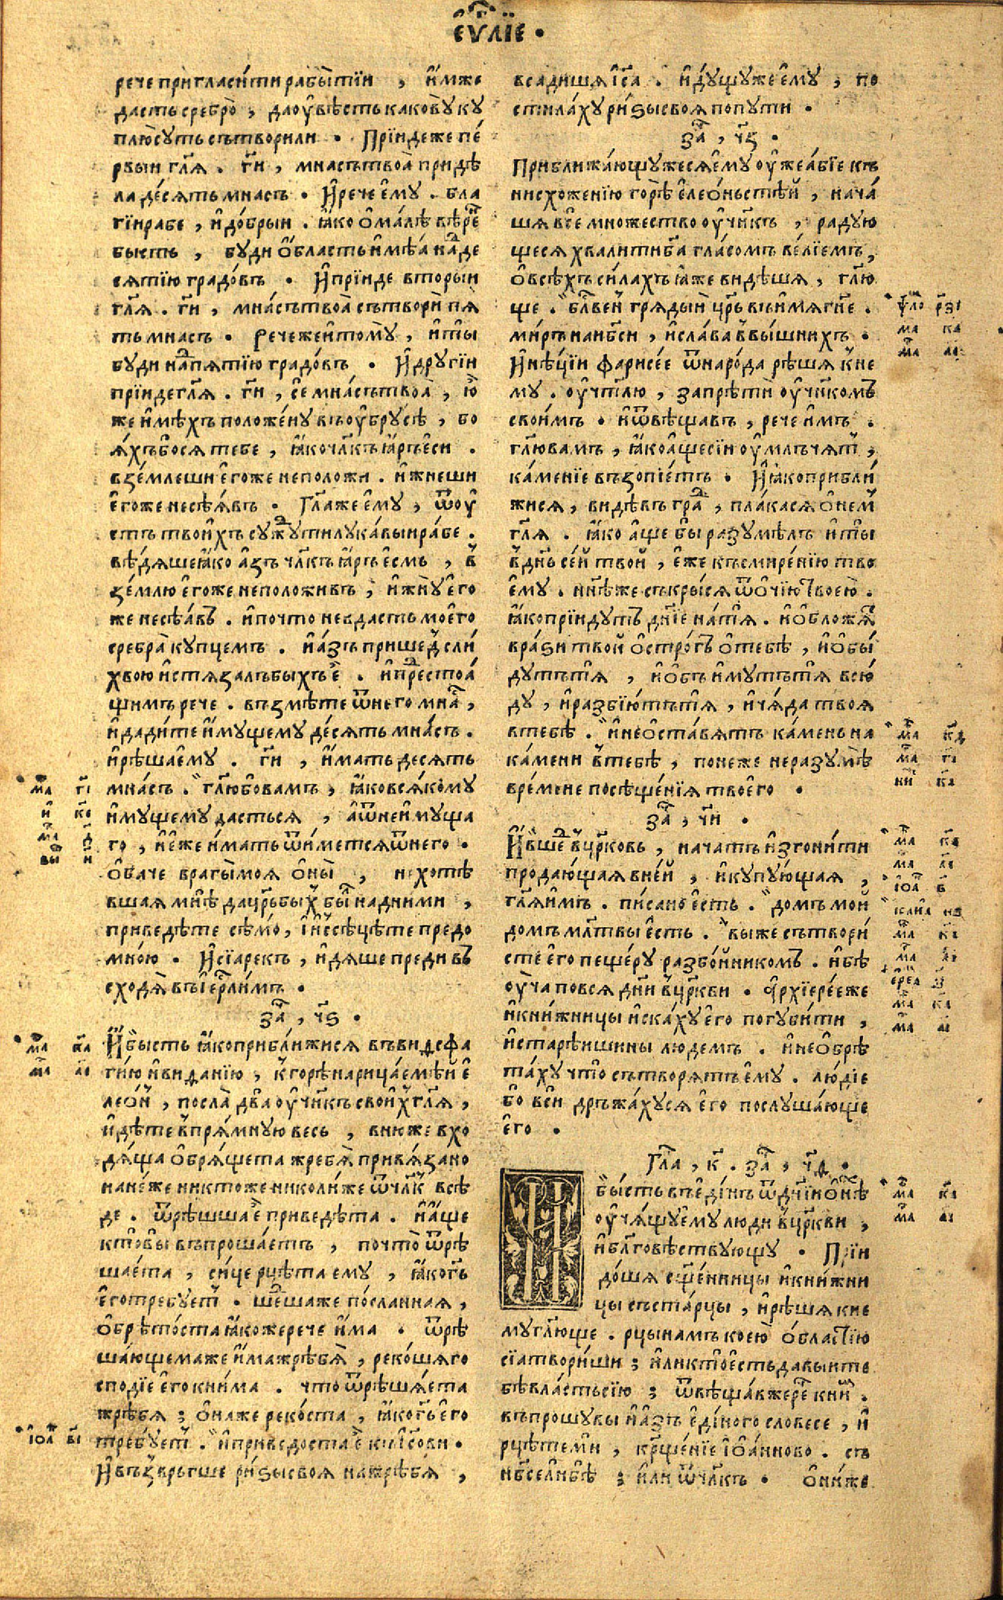 є҆ѵⷢ҇лїе •
рече пригласи́ти рабы̀ тїи , и҆мже
дасть сребро̀ , да ᲂу҆вѣсть какову кꙋ
плю̀ сꙋть сътворили • Прїиде же пе́
рвыи гл҃ѧ . гⷭ҇и , мнасъ твоѧ̀ придѣ
ла де́сѧть мнасъ • И҆ рече е҆мꙋ . бла
гїи рабе , и҆ до́брыи . ꙗ҆ко ѻ҆ ма́лѣ вѣ́рeⷩ҇
бысть , бꙋди ѻ҆́бласть и҆мѣѧ наⷣ де
сѧтїю градо́въ • И҆ прїиде вторыи
гл҃ѧ . гⷭ҇и , мна́съ твоѧ̀ сътвори пѧ
ть мнасъ • Рече же и҆ томꙋ̀ , и҆ ты̀
бꙋди наⷣ пѧтїю градо́въ • И҆ дрꙋгїи
прїиде гл҃ѧ . гⷭ҇и , се мна́съ твоѧ̀ , ю҆
же и҆мѣхъ положе́нꙋ въ ᲂу҆брꙋсѣ , бо
ѧ́хъ бо сѧ тебе , ꙗ҆ко чл҃къ ꙗ҆ръ є҆си .
взе́млеши є҆го́же не положи . и҆ жнеши
є҆го́же не сѣ́ѧвъ • Гл҃а же є҆мꙋ , ѿ ᲂу҆
стъ твои́хъ сꙋжⷣꙋ ти лꙋка́выи ра́бе .
вѣ́дѧше ꙗ҆ко а҆́зъ чл҃къ ꙗ҆ръ є҆смь , в
зе́млю є҆го́же не положивъ , и҆ жнꙋ̀ є҆го
же не сѣ́ѧвъ . и҆ почто не въдасть моего̀
сребра̀ кꙋпцемъ . и҆ а҆́зъ пришеⷣ съ ли
хвою и҆стѧза́лъ быхъ є҆ . и҆ преⷣстоѧ́
щимъ рече . възмѣ́те ѿ него мнаⷭ҇ ,
и҆ дади́те и҆мꙋщемꙋ де́сѧть мна́съ .
и҆ рѣ́ша е҆мꙋ . гⷭ҇и , и҆́мать десѧть
мна́съ . гл҃ю бо вамъ , ꙗ҆ко всѧ́комꙋ
и҆мꙋщемꙋ да́стьсѧ , а҆ ѿ неи́мꙋща
го , и҆ є҆́же и҆мать ѿи́метсѧ ѿ него •
Ѻ҆ба́че врагы̀ моѧ ѻ҆ны̀ , не хотѣ́
вшаѧ мнѣ да црⷭ҇ь быⷯ бы́лъ над ними ,
приведѣте сѣ́мо , и҆ и҆ссѣцѣте предо
мною • И҆ сїѧ̀ рекъ , и҆дѧ́ше преди въ
сходѧ̀ въ і҆ерⷭ҇ли́мъ •
заⷱ҇ , ч҃ѕ •
И҆ бысть ꙗ҆ко прибли́жисѧ въ вид сфа
гїю и҆ виданїю , к горѣ̀ нарица́емѣй є҆
лео́н , посла̀ два ᲂу҆чн҃къ свои́хъ гл҃ѧ ,
и҆дѣте в прѧ́мнꙋю весь , в ню́же вхо
дѧ́ща ѻ҆брѧ́щета жребѧ̀ привѧ́зано
на не́же никто́же николи́же ѿ чл҃къ всѣ́
де . ѿрѣ́шша є҆̀ приведѣ́та . и҆ а҆́ще
кто̀ вы въпроша́етъ , почто̀ ѿрѣ
ша́ета , сице рцѣ́та ему , ꙗ҆ко гⷭ҇ь
є҆го̀ требꙋетъ . шеⷣша же по́сланнаѧ ,
ѻ҆брѣто́ста ꙗ҆коже рече и҆́ма . ѿрѣ
ша́ющема же и҆́ма жребѧ̀ , реко́шѧ го
спо́дїе є҆го̀ книма . что ѿрѣша́ета
жребѧ ; ѻ҆на́же реко́ста , ꙗ҆ко гⷭ҇ь є҆го
требꙋетъ . и҆ приведоста є҆ къ і҆с҃ови •
И҆ възвръгше ри́зы своѧ на жребѧ ,
всадишѧ і҆с҃а . и҆дꙋщꙋ же є҆мꙋ , по
стила́хꙋ ри́зы своѧ по пꙋти •
заⷱ҇ , ч҃з •
Приближа́ющꙋ же сѧ є҆мꙋ ᲂу҆же а҆́бїе къ
нисхоже́нїю горѣ̀ є҆лео́ньстѣй , нача́
шѧ все мно́жество ᲂу҆чн҃къ , ра́дꙋю
щесѧ хвали́ти б҃а гла́сомъ ве́лїемъ ,
ѻ҆ всѣ́хъ си́лахъ ꙗ҆же видѣшѧ , гл҃ю
ще . бл҃ве́нъ грѧды́й црⷭ҇ь въ и҆́мѧ гⷭ҇не .
ми́ръ на нб҃си , и҆ сла́ва в вы́шнихъ .
И҆ нѣцїи фарисе́е ѿ наро́да рѣ́шѧ к не
мꙋ . ᲂу҆чт҃лю , запрѣти ᲂу҆чн҃комъ
своимъ . и҆ ѿвѣщавъ , рече и҆мъ .
гл҃ю вамъ , ꙗ҆ко а҆ще сїи ᲂу҆млъчѧтъ ,
ка́менїе възопїетъ • И҆ ꙗ҆ко прибли́
жисѧ , ви́дѣвъ граⷣ , пла́касѧ ѻ҆ нем
гл҃ѧ . ꙗ҆ко а҆́ще бы разꙋмѣ́лъ и҆ ты̀
в дн҃ь се́й твой , є҆́же къ смире́нїю тво
є҆мꙋ . нн҃ѣ же съкры́сѧ ѿ ѻ҆чїю̀ твоею̀ .
ꙗ҆ко прїидꙋтъ дн҃їе на тѧ̀ . и҆ ѻ҆бложѧⷮ
вра́ѕи твоѝ ѻ҆стро́гъ ѻ҆ тебѣ , и҆ ѻ҆бы́
дꙋтъ тѧ̀ , и҆ ѻ҆бъи́мꙋтъ тѧ всю́
дꙋ , и҆ разбїю́тъ тѧ , и҆ чѧ́да твоѧ
в тебѣ . и҆ не ѻ҆ста́вѧтъ ка́мень на
ка́мени в тебѣ , понеже не разꙋмѣ̀
вре́мене посѣще́нїѧ твоего •
заⷱ҇ , ч҃и •
И҆ вшеⷣ в црⷭ҇ковь , нача́тъ и҆згони́ти
продаю́щаѧ в не́й , и҆ кꙋпꙋю́щаѧ ,
гл҃ѧ и҆мъ . пи́сано є҆сть . до́мъ мо́й
до́мъ мл҃твы є҆сть . вы́ же сътвори́
сте его пеще́рꙋ разбо́йникомъ . и҆ бѣ̀
ᲂу҆ча̀ по всѧ́ дн҃и в црⷭ҇кви . а҆рхїере́е же
и҆ кни́жницы и҆ска́хꙋ є҆го̀ погꙋби́ти ,
и҆ старѣ́ишины людемъ . и҆ не ѻ҆брѣ
та́хꙋ что̀ сътворѧтъ є҆мꙋ . лю́дїе
бо вси дръжа́хꙋсѧ є҆го̀ послꙋша́юще
є҆го •
Глаⷡ҇ , к҃ . заⷱ҇ , ч҃ѳ •
бы́сть въ є҆ди́нъ ѿ дн҃їи ѻ҆нѣⷯ
ᲂу҆чѧ́щꙋ є҆мꙋ лю́ди в црⷭ҇кви ,
и҆ благовѣ́ствꙋющꙋ • Прїи
до́шѧ сщ҃е́нницы и҆ кни́жни
цы съ ста́рцы , и҆ рѣ́шѧ к не
мꙋ гл҃юще . рцы̀ намъ коею̀ ѻ҆бластїю
сїѧ̀ твори́ши ; и҆ли кто̀ є҆сть давы́и те
бѣ вла́сть сїю ; ѿвѣща́в же рече к ниⷨ .
въпрошꙋ вы и҆ а҆зъ є҆ди́ного словесе , и҆
рцѣ́те ми , кр҃щенїе і҆ѡа́нново . съ
нб҃се ли бѣ̀ ; и҆ли ѿ чл҃къ • ѻ҆ни́ же